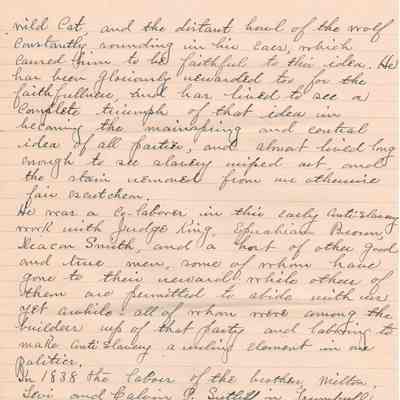 wild Cat, and the distant howl of the wolf
constantly sounding in his ears, which
caused him to be faithful to this idea. He
has been gloriously rewarded too for the
faithfullness, and has lived to see a
complete triumph of that idea in
becoming the mainspring and central
idea of all parties, and almost lived long
enough to see slavery wiped out and
the stain removed from our otherwise
fair escutchem.
He was a Co-laborer in this early Anti-Slavery
work with Judge King, Ephraham Brown,
Deacon Smith, and a host of other good
and true men, some of whom have
gone to their reward while others of
them are permitted to abide with us
yet awhile: all of whom were among the
builders up of that party and labboring to
make Anti Slavery a ruling element in our
politics.
In 1838 the labour of the brother, Milton,
Levi and Calvin P. Sutliff in Trumbull